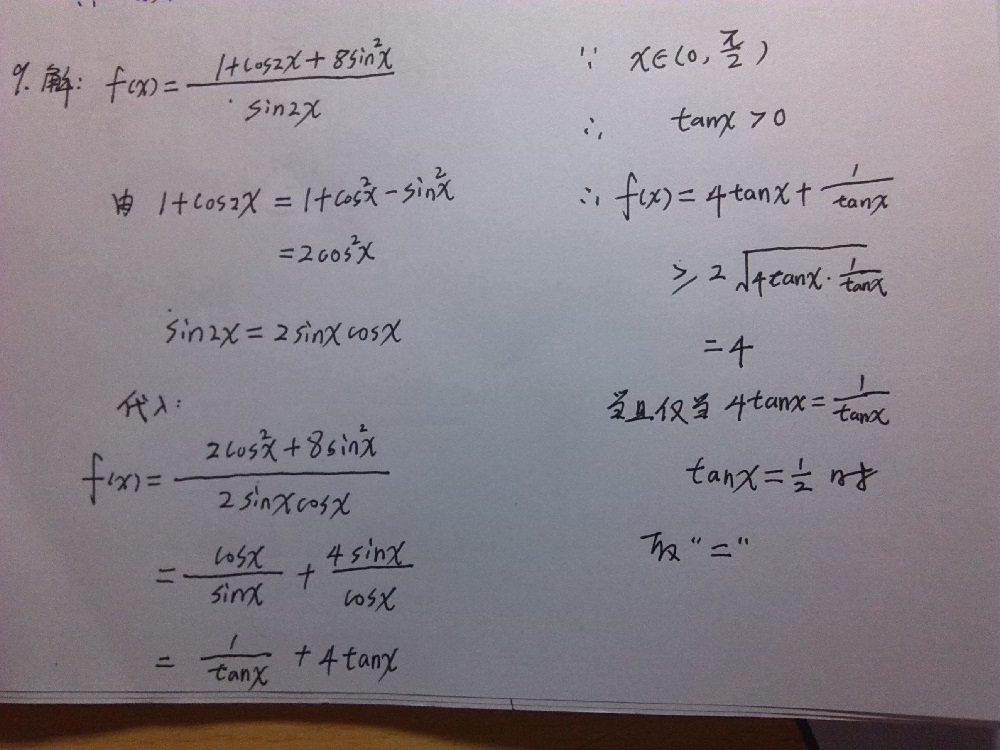 9.解: f(x)=\frac{1+cos2x+8sin²x}{sin2x}
由 1+cos2x=1+cos²x-sin²x
=2cos²x
sin2x=2sinxcosx
代入:
f(x)=\frac{2cos²x+8sin²x}{2sinxcosx}
=\frac{cosx}{sinx}+\frac{4sinx}{cosx}
=\frac{1}{tanx}+4tanx
∵ x∈(0,\frac{π}{2})
∴ tanx>0
∴ f(x)=4tanx+\frac{1}{tanx}
≥2\sqrt{4tanx·\frac{1}{tanx}}
=4
当且仅当 4tanx=\frac{1}{tanx}
tanx=\frac{1}{2} 时
取“=”